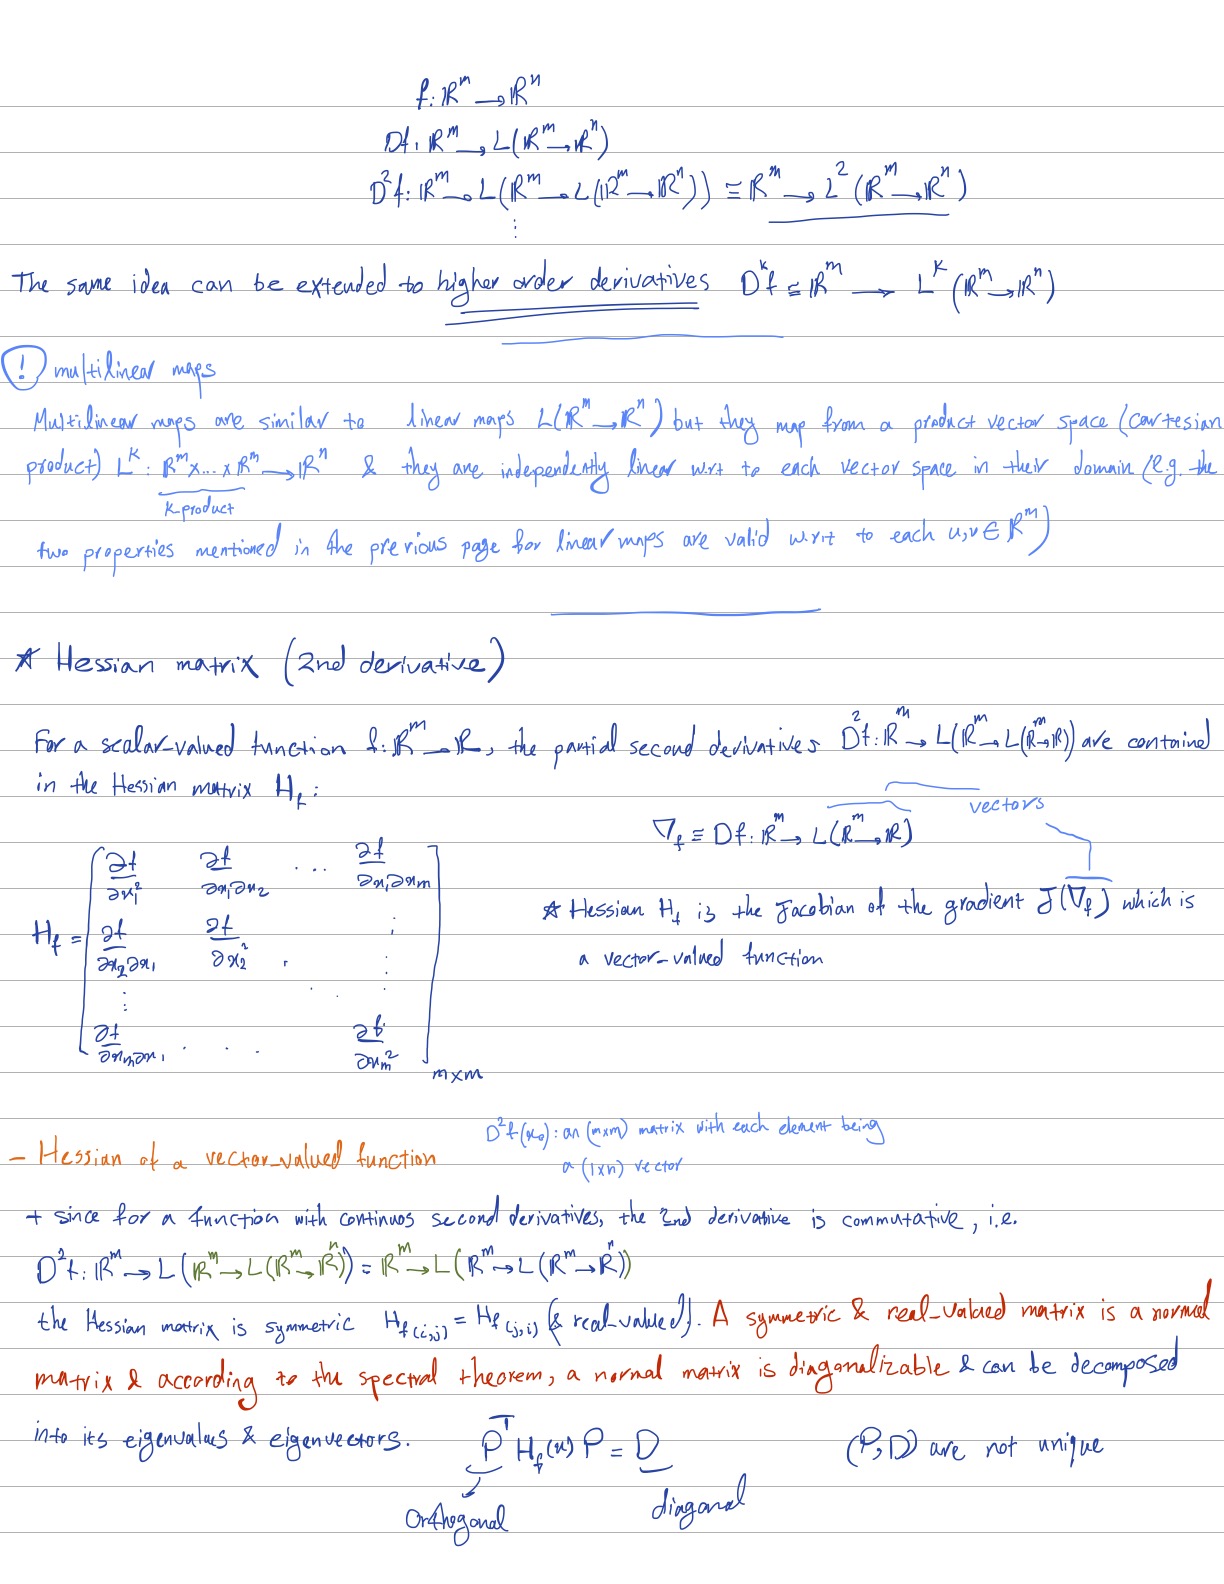 f: ℝᵐ → ℝⁿ
Df: ℝᵐ → L(ℝᵐ → ℝⁿ)
D²f: ℝᵐ → L(ℝᵐ → L(ℝᵐ → ℝⁿ)) ≡ ℝᵐ → L²(ℝᵐ → ℝⁿ)
⋮
The same idea can be extended to higher order derivatives Dᵏf ≡ ℝᵐ → Lᴷ(ℝᵐ → ℝⁿ)
! multilinear maps
Multilinear maps are similar to linear maps L(ℝᵐ → ℝⁿ) but they map from a product vector space (cartesian
product) Lᴷ: ℝᵐ x ... x ℝᵐ → ℝⁿ & they are independently linear w.r.t to each vector space in their domain (e.g. the
K-product
two properties mentioned in the previous page for linear maps are valid w.r.t to each u,v ∈ ℝᵐ)
* Hessian matrix (2nd derivative)
For a scalar-valued function f: ℝᵐ → ℝ, the partial second derivatives D²f: ℝᵐ → L(ℝᵐ → L(ℝᵐ → ℝ)) are contained
in the Hessian matrix H_f :
vectors
∇_f ≡ Df: ℝᵐ → L(ℝᵐ → ℝ)
H_f = [ ∂f/∂x₁² ∂f/∂x₁∂x₂ ... ∂f/∂x₁∂xₘ
∂f/∂x₂∂x₁ ∂f/∂x₂² . ⋮
⋮ . . .
∂f/∂xₘ∂x₁ . . . ∂f/∂xₘ² ] m×m
* Hessian H_f is the Jacobian of the gradient J(∇_f) which is
a vector-valued function
D²f(x₀): an (m×m) matrix with each element being
a (1×n) vector
- Hessian of a vector-valued function
+ since for a function with continuos second derivatives, the 2nd derivative is commutative, i.e.
D²f: ℝᵐ → L(ℝᵐ → L(ℝᵐ → ℝⁿ)) = ℝᵐ → L(ℝᵐ → L(ℝᵐ → ℝⁿ))
the Hessian matrix is symmetric H_f(i,j) = H_f(j,i) (& real-valued). A symmetric & real-valued matrix is a normal
matrix & according to the spectral theorem, a normal matrix is diagonalizable & can be decomposed
into its eigenvalues & eigenvectors. Pᵀ H_f(x) P = D (P,D) are not unique
Orthogonal diagonal